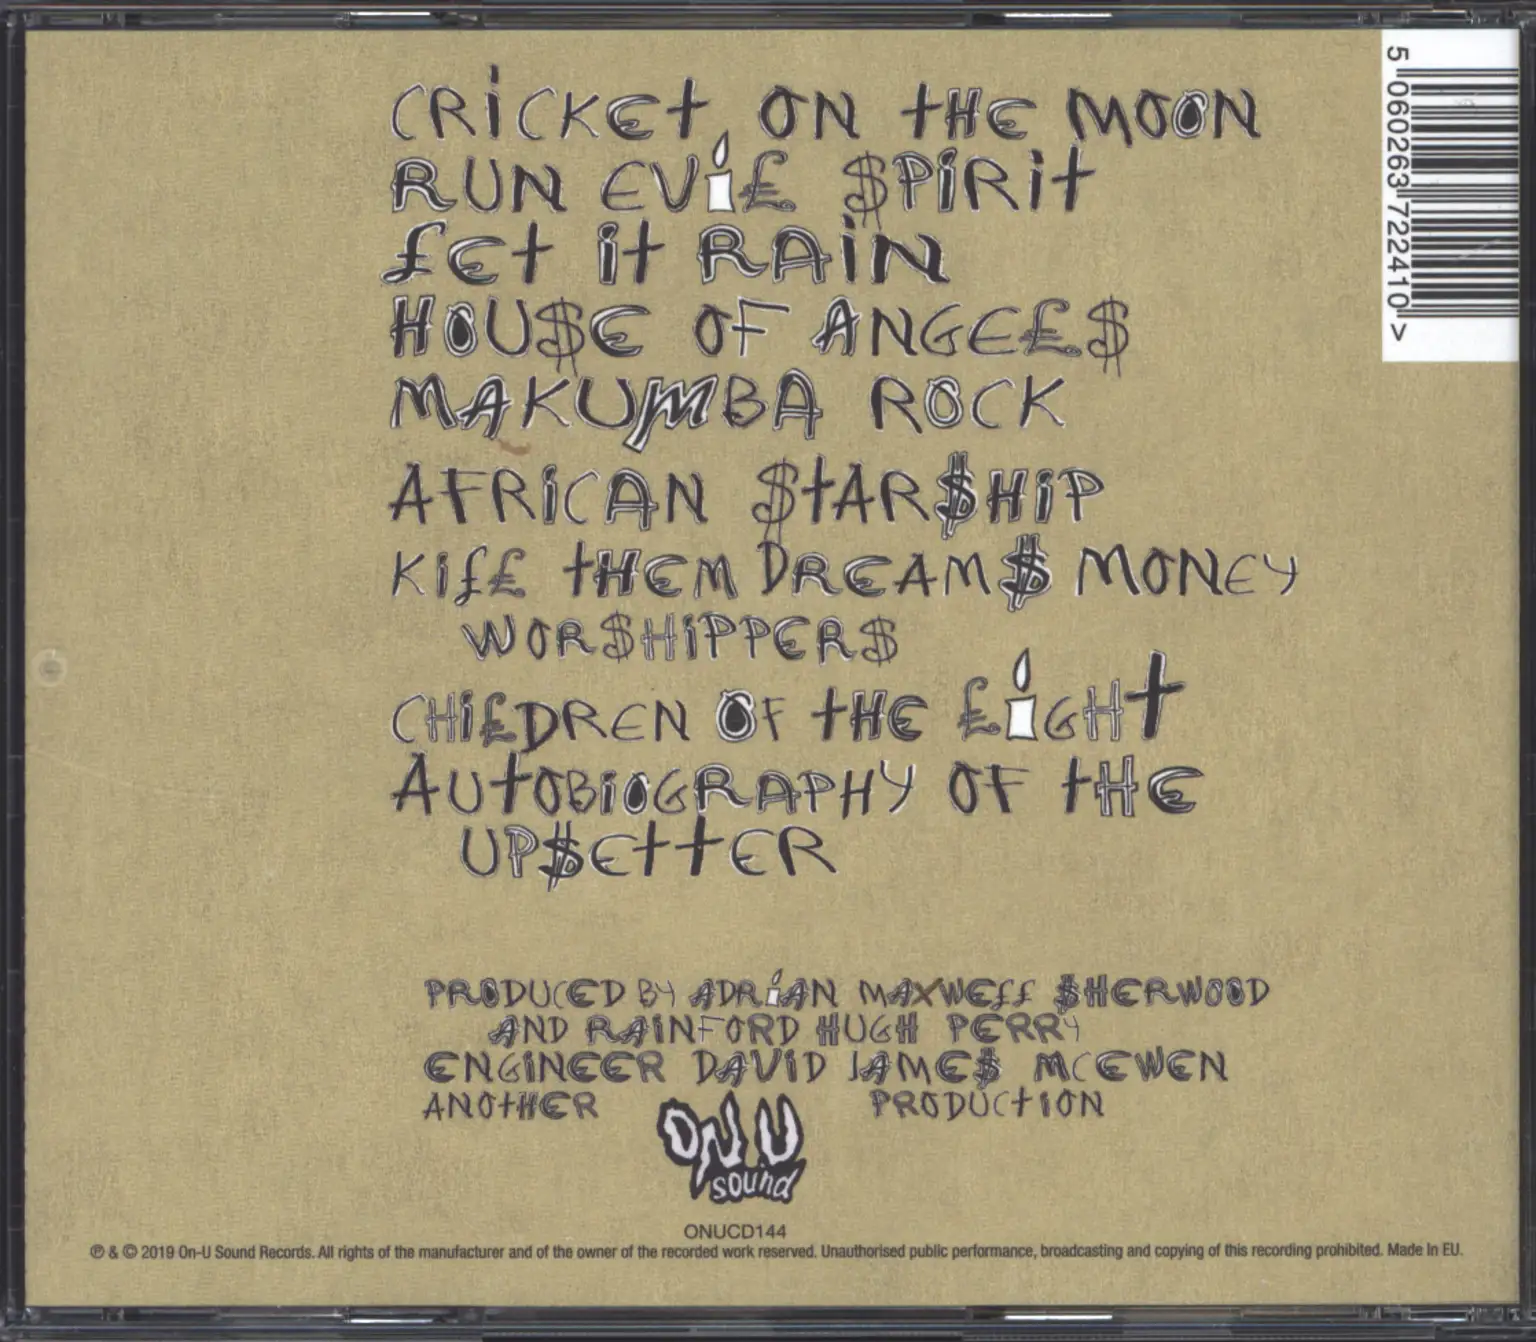 CRiCKEt ON tHE MOON
RUN EVi£ $PiRit
£Et it RAiN
HOU$E OF ANGE£$
MAKUMBA ROCK
AFRiCAN $tAR$HiP
Ki££ tHEM DREAM$ MONEY
WOR$HiPPER$
CHi£DREN OF tHE £iGHt
AUtOBiOGRAPHY OF tHE
UP$EttER
PRODUCED BY ADRiAN MAXWE££ $HERWOOD
AND RAiNFORD HUGH PERRY
ENGiNEER DAViD JAME$ MCEWEN
ANOtHER ON U sound PRODUCtiON
ONUCD144
℗ & © 2019 On-U Sound Records. All rights of the manufacturer and of the owner of the recorded work reserved. Unauthorised public performance, broadcasting and copying of this recording prohibited. Made In EU.
5 060263 722410 >